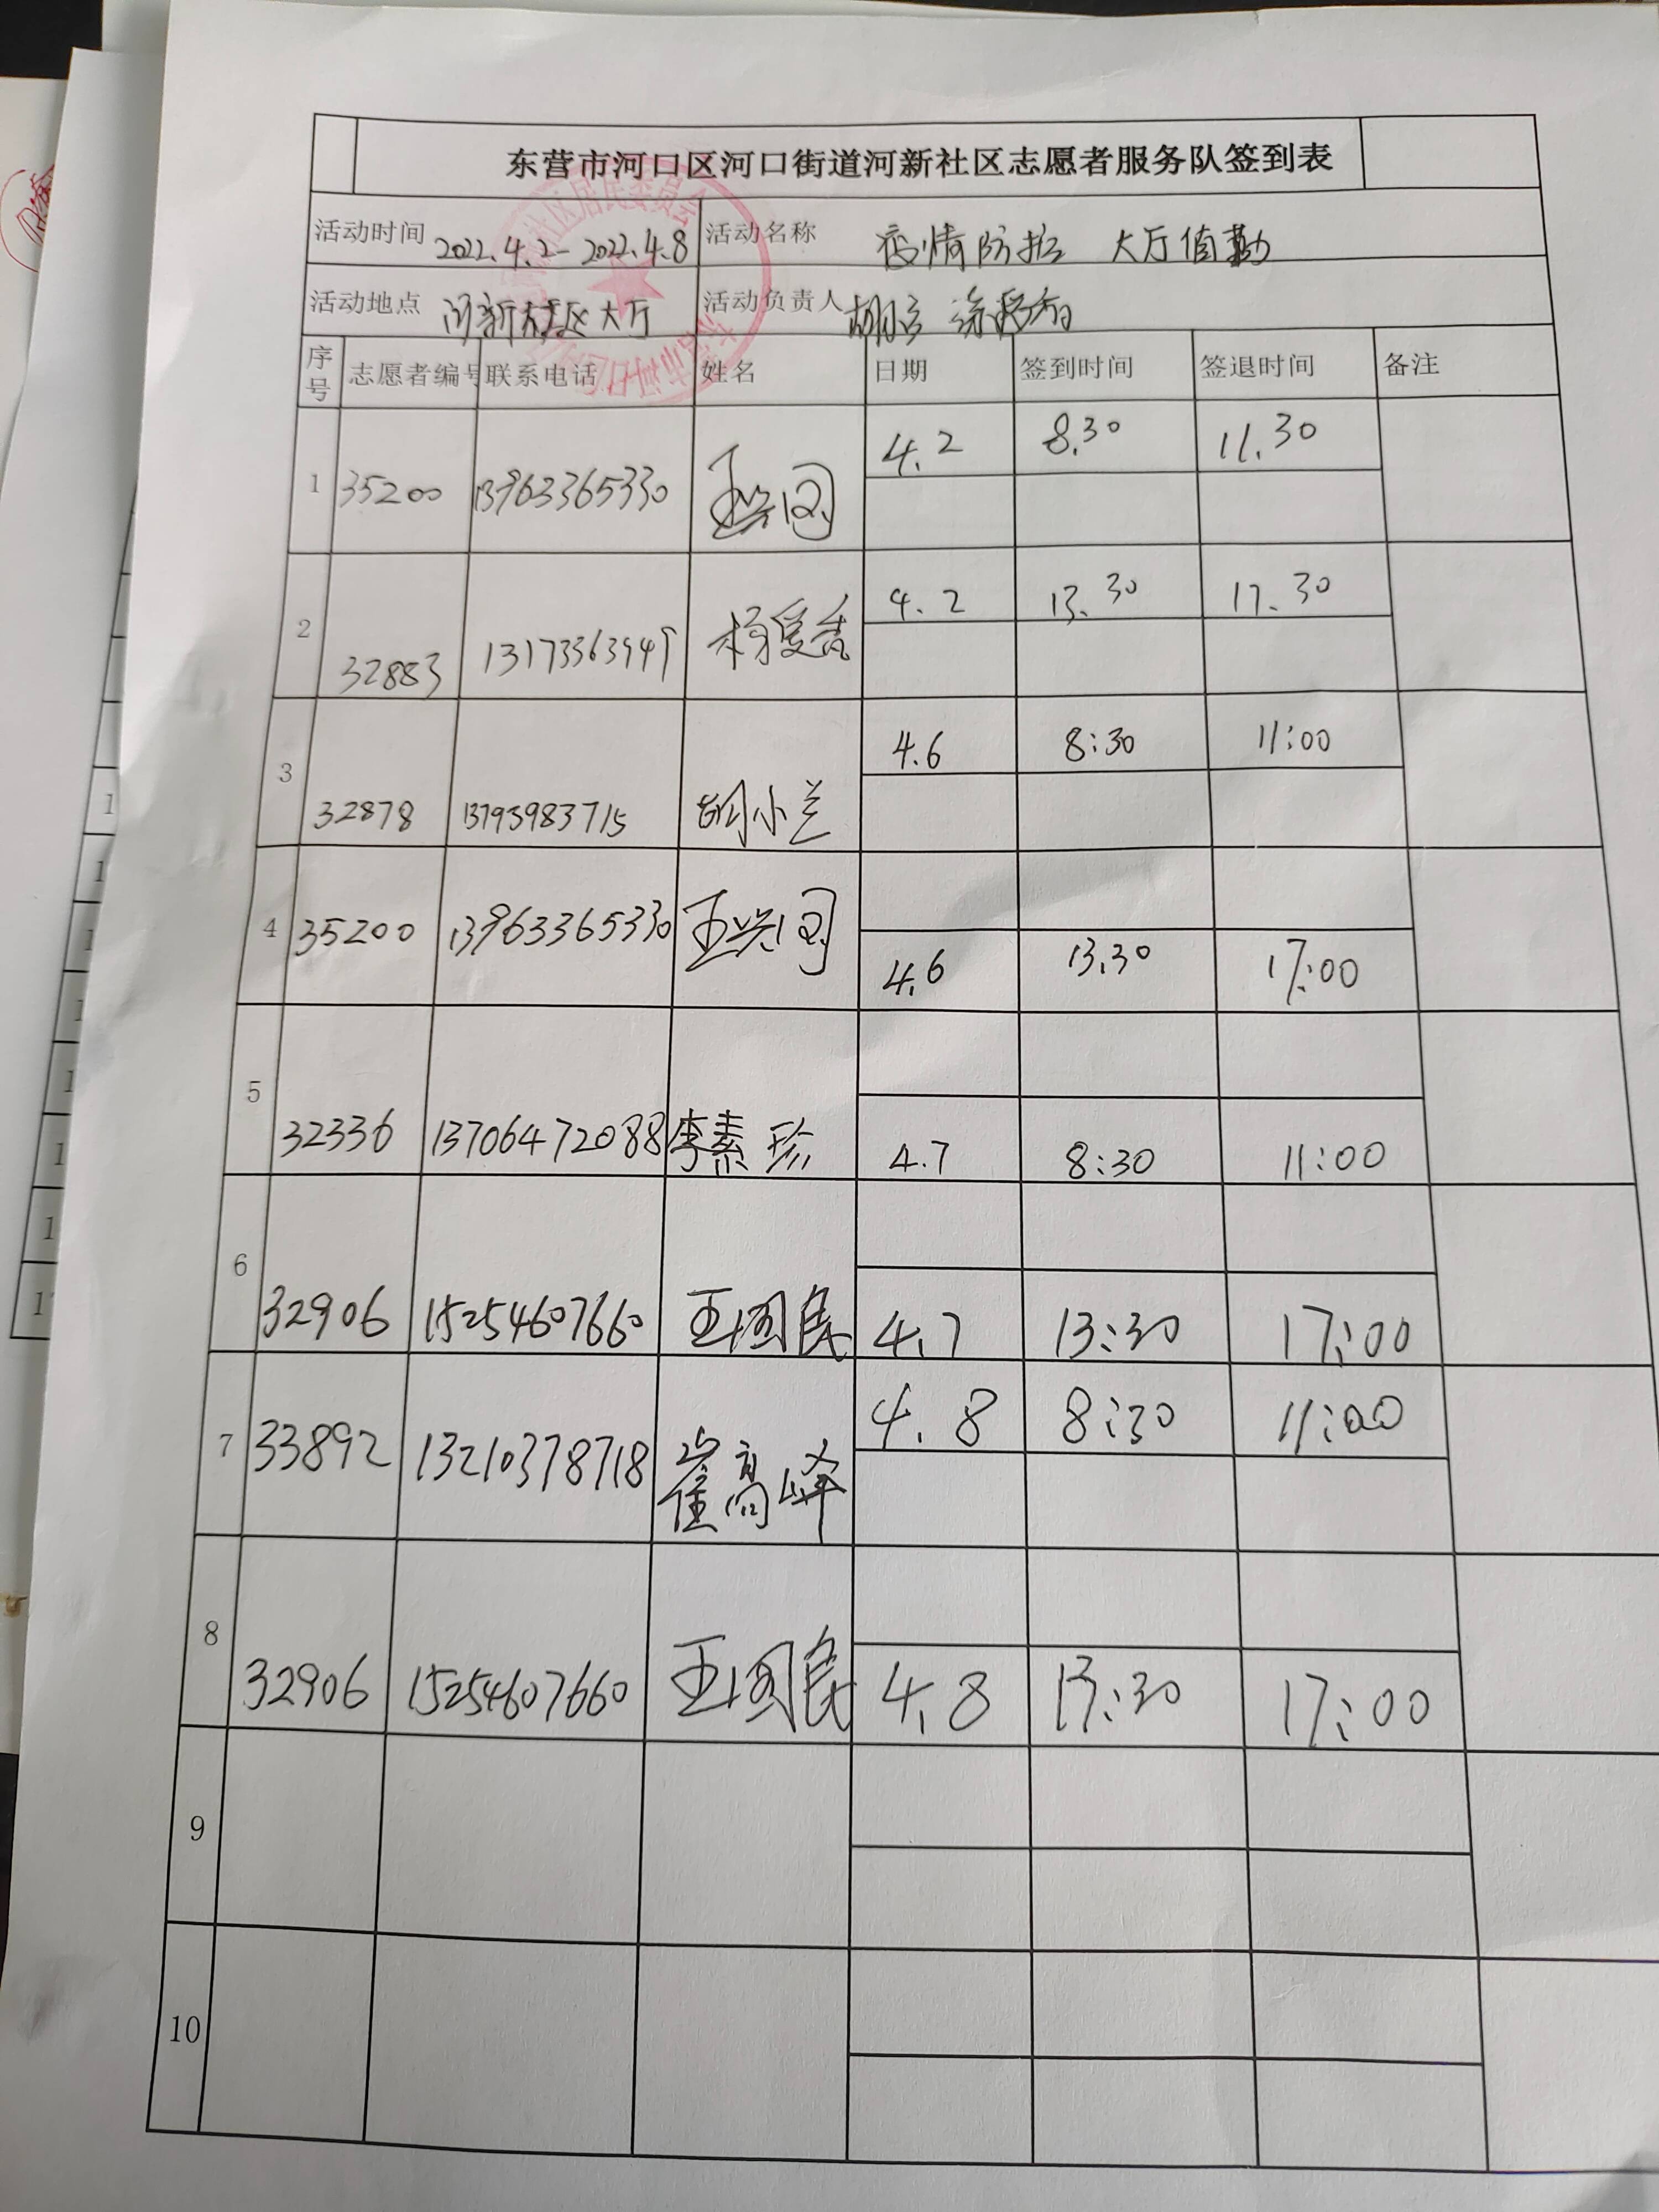 东营市河口区河口街道河新社区志愿者服务队签到表
活动时间 2022.4.2-2022.4.8 活动名称 疫情防控 大厅值勤
活动地点 河新社区大厅 活动负责人
序号 志愿者编号 联系电话 姓名 日期 签到时间 签退时间 备注
1 35200 13963365330 王兴同 4.2 8.30 11.30
2 32883 杨爱香 4.2 13.30 17.30
3 32878 13793983715 胡小兰 4.6 8:30 11:00
4 35200 13963365330 王兴同 4.6 13.30 17:00
5 32336 13706472088 李素珍 4.7 8:30 11:00
6 32906 15254607660 王国民 4.7 13:30 17:00
7 33892 13210378718 崔高峰 4.8 8:30 11:00
8 32906 15254607660 王国民 4.8 13:30 17:00
9
10